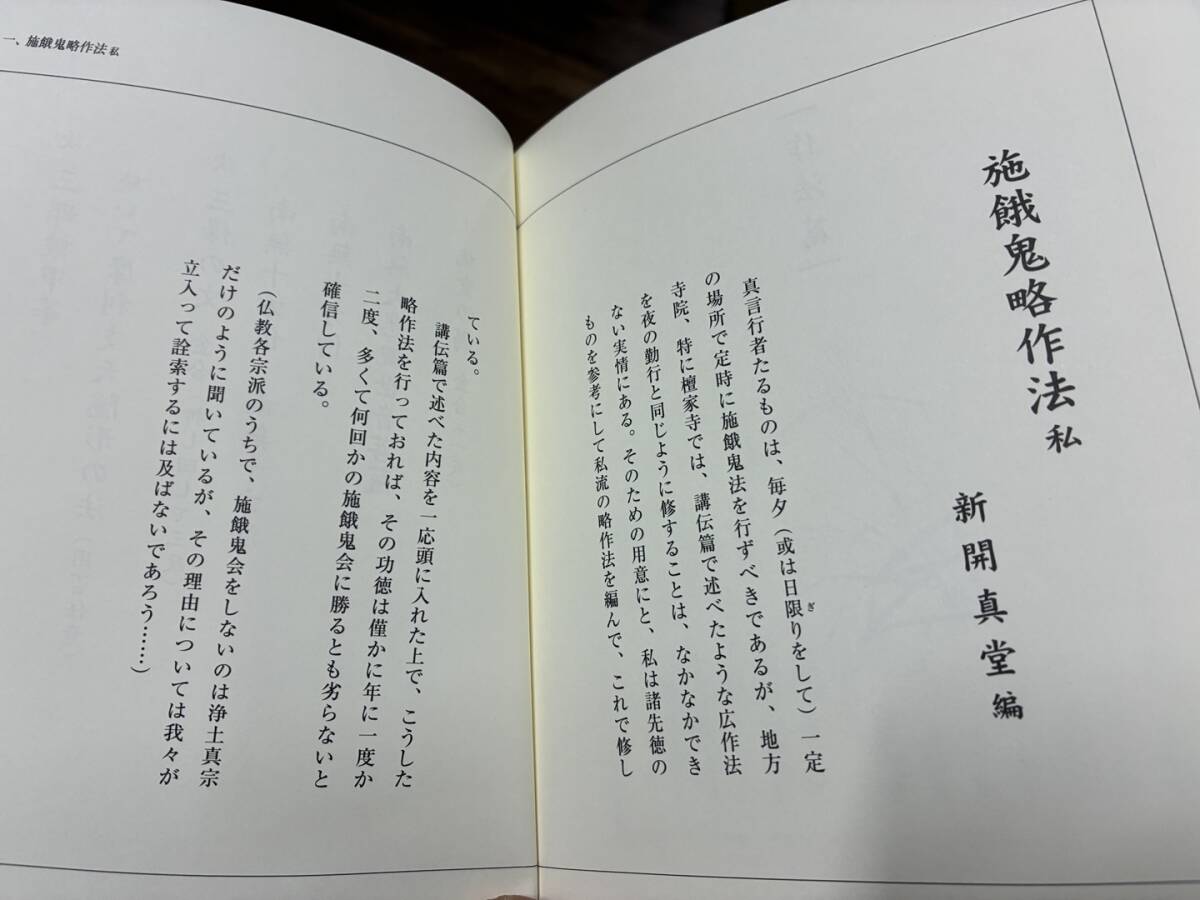 施餓鬼略作法 私
新開真堂 編
真言行者たるものは、毎夕（或は日限りをして）一定
ぎ
の場所で定時に施餓鬼法を行ずべきであるが、地方
寺院、特に檀家寺では、講伝篇で述べたような広作法
を夜の勤行と同じように修することは、なかなかでき
ない実情にある。そのための用意にと、私は諸先徳の
ものを参考にして私流の略作法を編んで、これで修し
一、施餓鬼略作法 私
ている。
講伝篇で述べた内容を一応頭に入れた上で、こうした
略作法を行っておれば、その功徳は僅かに年に一度か
二度、多くて何回かの施餓鬼会に勝るとも劣らないと
確信している。
（仏教各宗派のうちで、施餓鬼会をしないのは浄土真宗
だけのように聞いているが、その理由については我々が
立入って詮索するには及ばないであろう……）